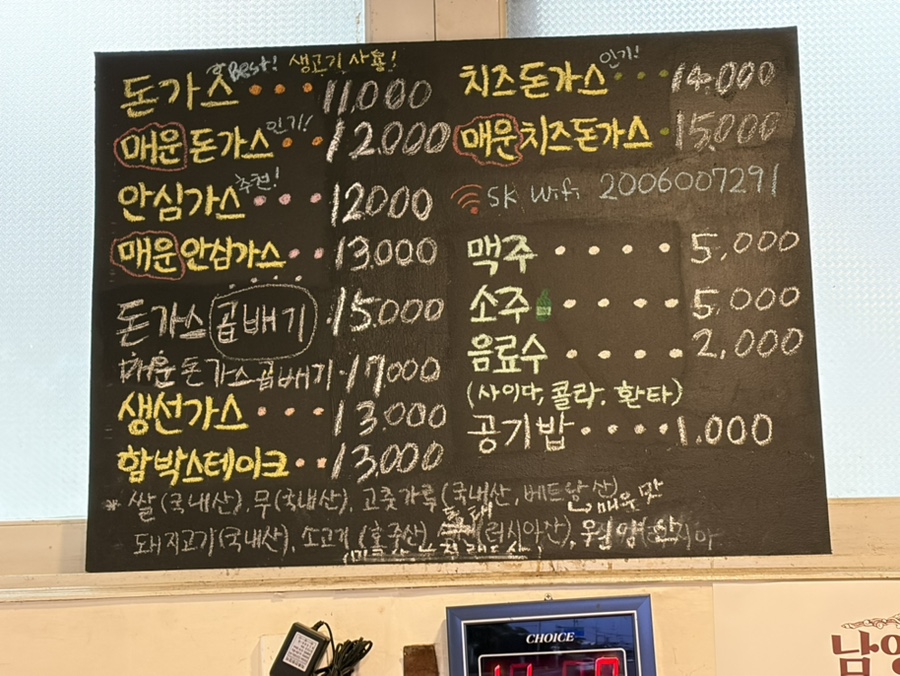 Best! 생고기 사용!
돈가스 11,000
매운돈가스 인기! 12,000
안심가스 추천! 12000
매운 안심가스 13,000
돈가스 곱배기 15,000
매운돈가스곱배기 17,000
생선가스 13,000
함박스테이크 13,000
치즈돈가스 인기! 14,000
매운치즈돈가스 15,000
SK Wifi 2006007291
맥주 5,000
소주 5,000
음료수 2,000
(사이다, 콜라, 환타)
공기밥 1.000
* 쌀(국내산), 무(국내산), 고춧가루(국내산, 베트남산) 매운맛
돼지고기(국내산), 소고기(호주산), 동태(러시아산),
CHOICE